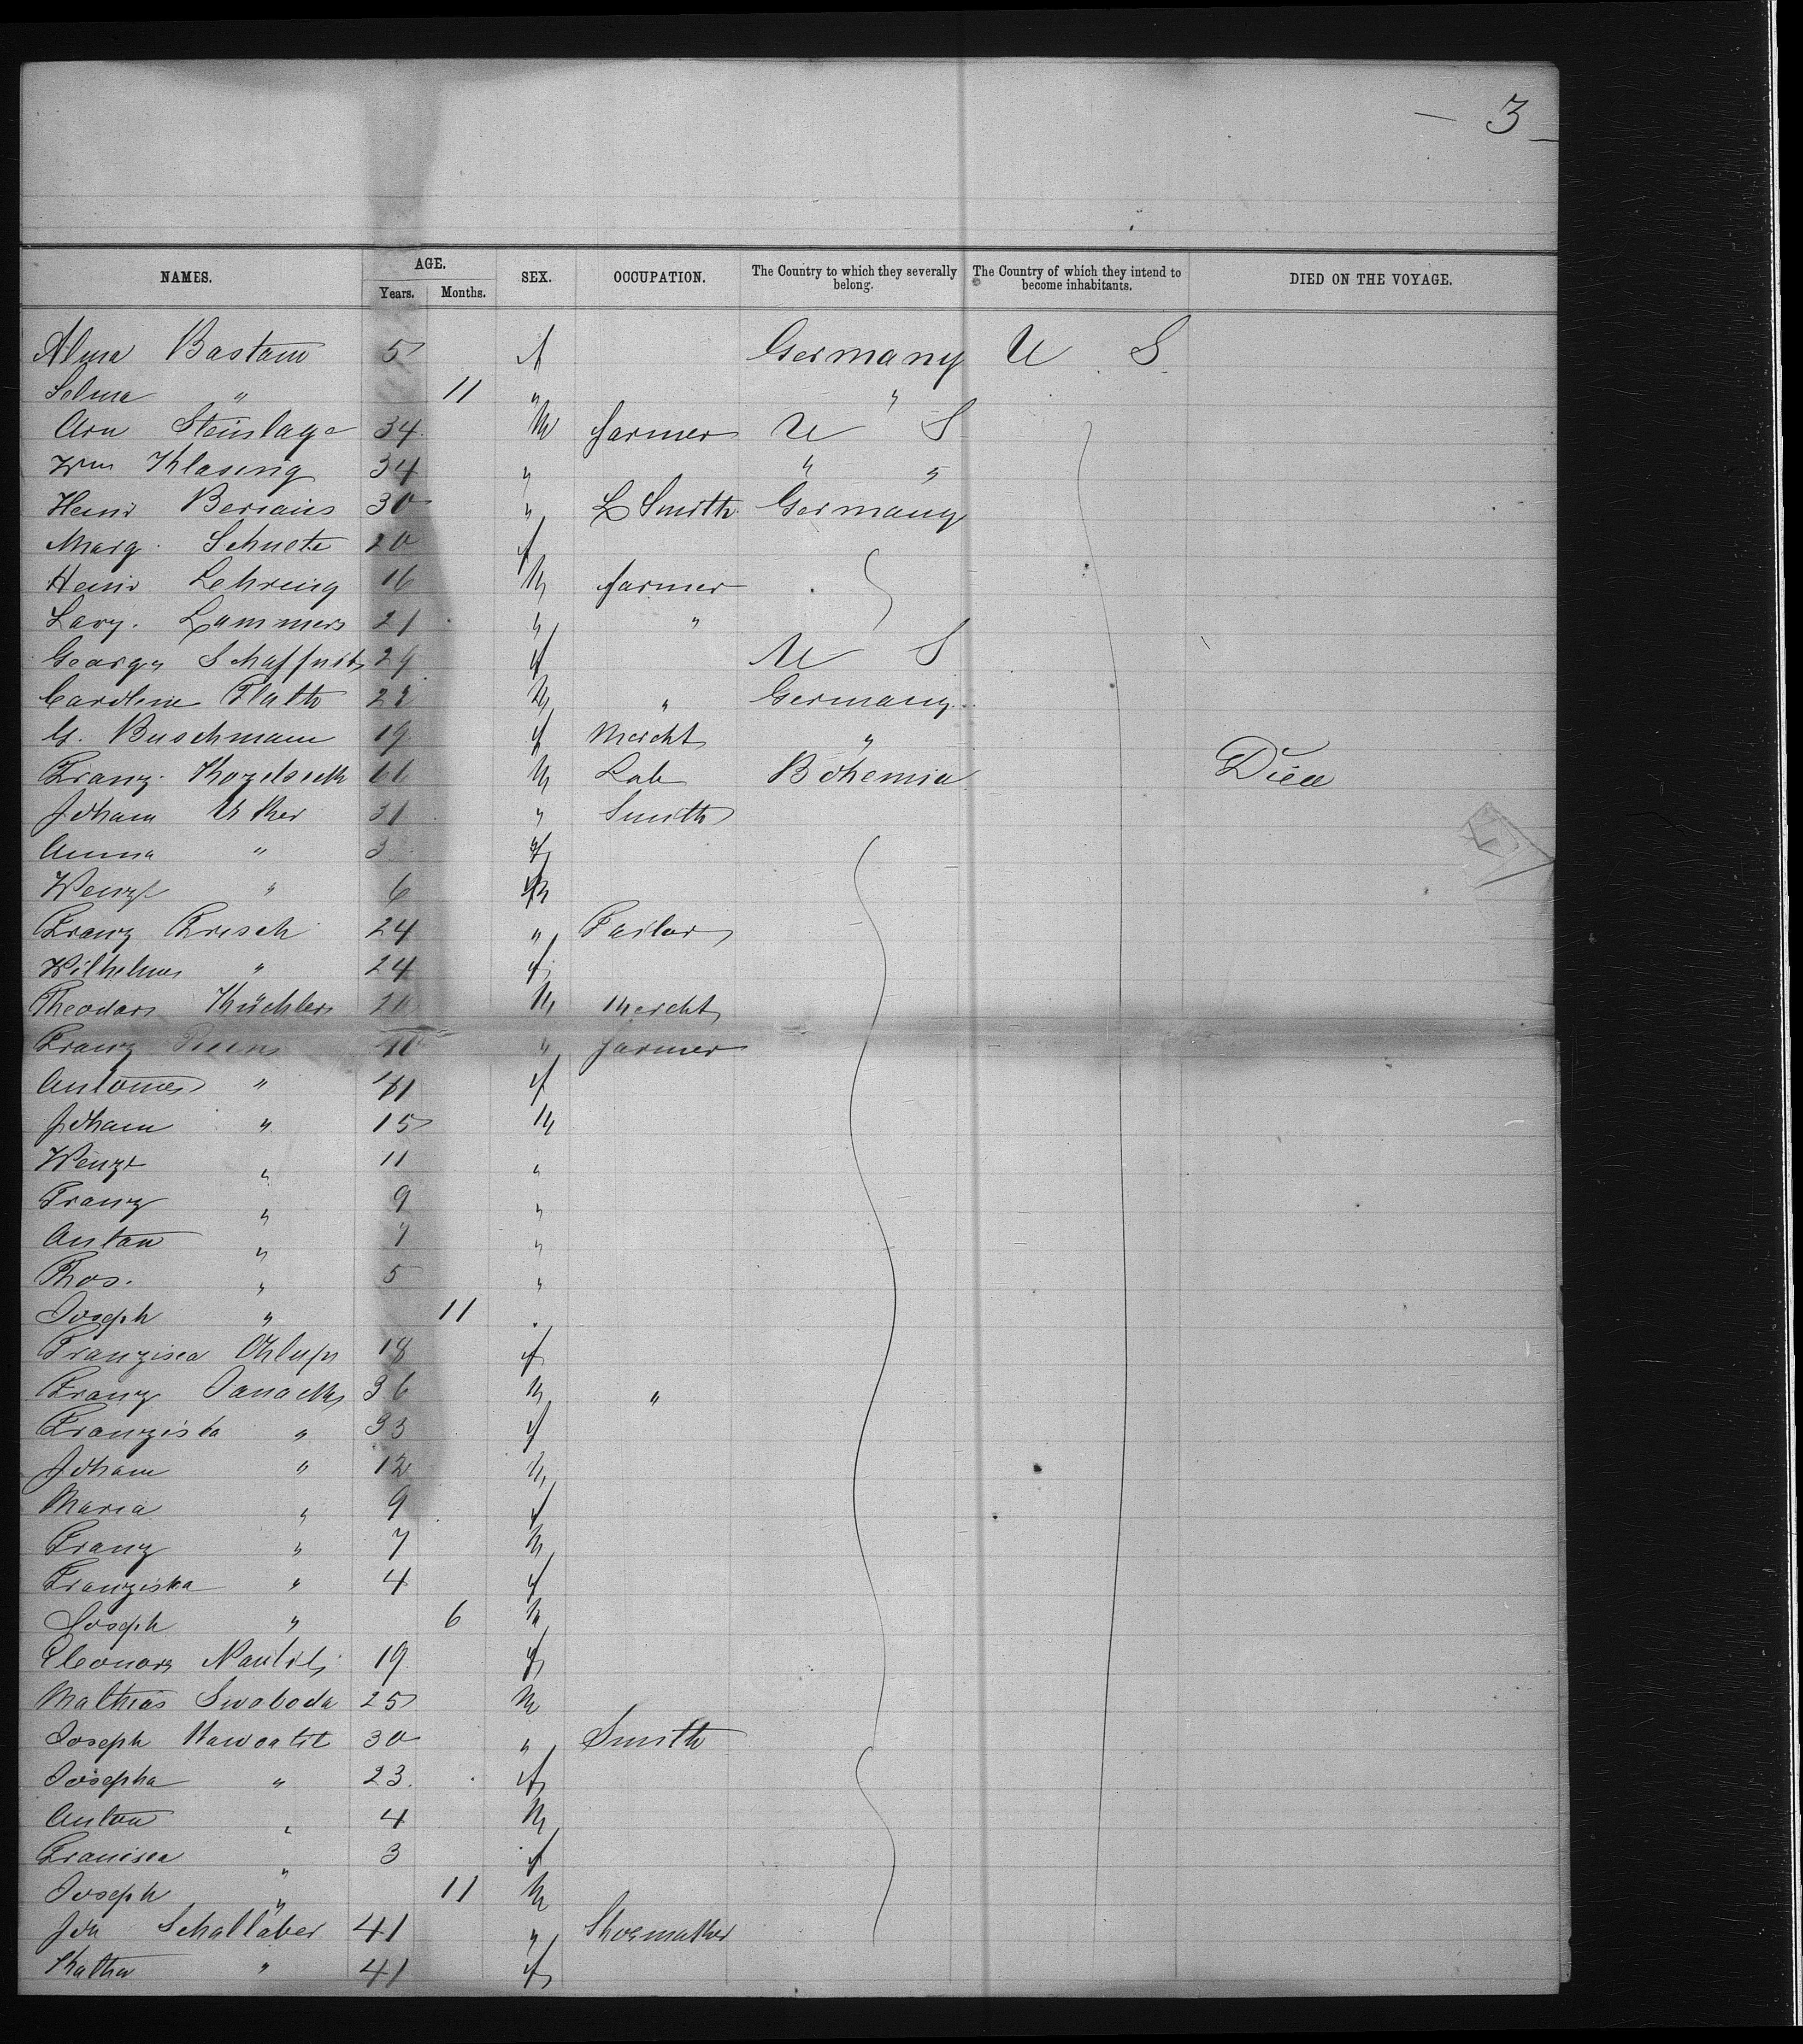 — 3 —
NAMES. AGE. Years. Months. SEX. OCCUPATION. The Country to which they severally belong. The Country of which they intend to become inhabitants. DIED ON THE VOYAGE.
Alma Bastam 5 f Germany U S
Selma " 11 " "
Arn Steinlage 34 M farmer U S
Wm Klasing 34 " " "
Heinr 30 " L Smith Germany
Marg. Schulte 20 f
Heinr Lehring 16 M farmer
Lammers 21 " "
George 29 f U S
Caroline Plath 22 M " Germany
G. Buschmann 19 f Mercht "
Franz 61 M Lab Bohemia Died
Joham 31 " Smith
Anna " 3 f
Wenzl " 6 M
Franz Frisch 24 " Tailor
Wilhelm " 24 f
Theodor Küchler 20 M Mercht
Franz " farmer
" 41 f
Joham " 15 M
Wenzl " 11 "
Franz " 9 "
Anton " 7 "
Thos. " 5 "
Joseph " 11 "
Franzisca 18 f
Franz 36 M "
Franziska " 33 f
Joham " 12 M
Maria " 9 f
Franz " 7 M
Franziska " 4 f
Joseph " 6 M
Eleonora 19 f
Mathias Swoboda 25 M
Joseph 30 " Smith
Josepha " 23 f
Anton " 4 M
" 3 f
Joseph " 11 M
Joh Schallaber 41 " Shoemaker
Katha " 41 f